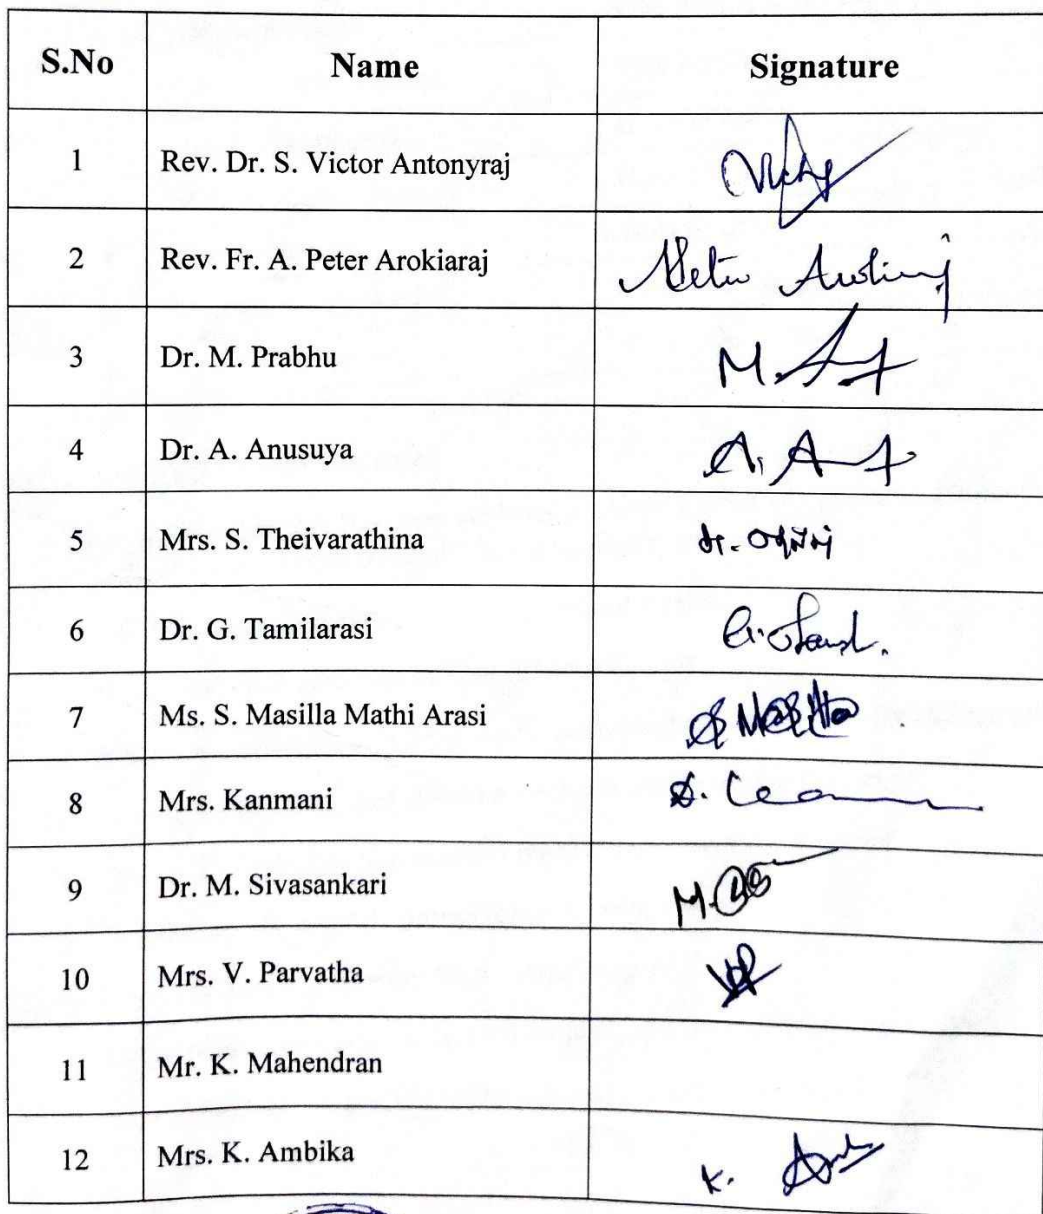 S.No Name Signature
1 Rev. Dr. S. Victor Antonyraj
2 Rev. Fr. A. Peter Arokiaraj
3 Dr. M. Prabhu M.
4 Dr. A. Anusuya A. A
5 Mrs. S. Theivarathina
6 Dr. G. Tamilarasi
7 Ms. S. Masilla Mathi Arasi
8 Mrs. Kanmani
9 Dr. M. Sivasankari M.
10 Mrs. V. Parvatha
11 Mr. K. Mahendran
12 Mrs. K. Ambika K.